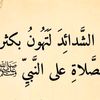 الشَّدائِدَ لَتَهُونُ بكثر
صَّلاةِ على النَّبيِّ ﷺ